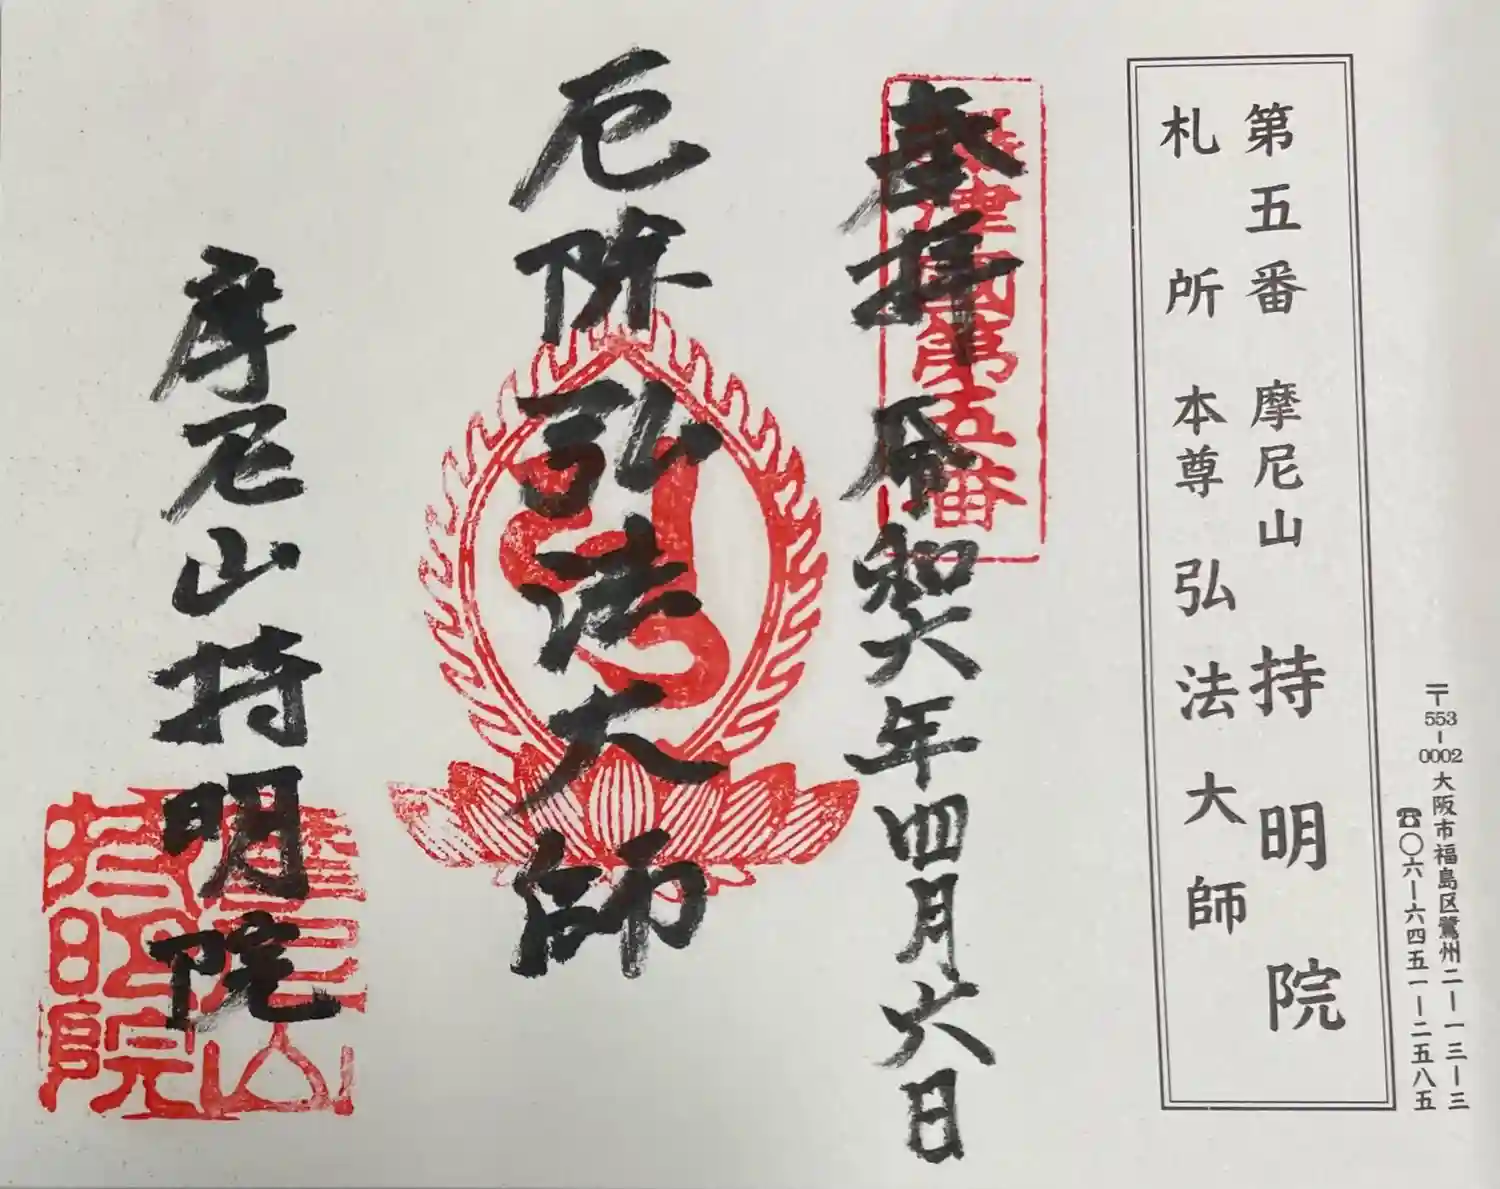 〒553-0002 大阪市福島区鷺州二ー一三ー三
☎〇六ー六四五一ー二五八五
第五番 摩尼山 持明院
札所 本尊 弘法大師
摂津国第五番
奉拝 令和六年四月六日
厄除弘法大師
摩尼山持明院
摩尼山
持明院